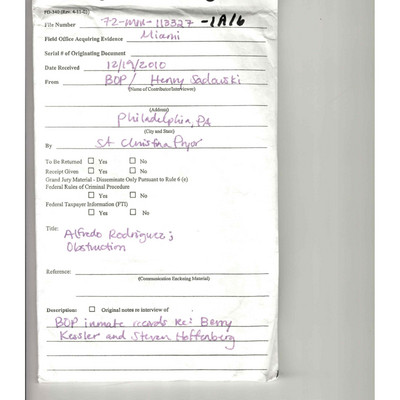 FD-340 (Rev. 4-11-03)
File Number 72-MM-113327 -1A16
Field Office Acquiring Evidence Miami
Serial # of Originating Document
Date Received 12/19/2010
From BOP / Henry Sadowski
(Name of Contributor/Interviewee)
(Address)
Philadelphia, PA
(City and State)
By Christina Pryor
To Be Returned ☐ Yes ☐ No
Receipt Given ☐ Yes ☐ No
Grand Jury Material - Disseminate Only Pursuant to Rule 6 (e)
Federal Rules of Criminal Procedure
☐ Yes ☐ No
Federal Taxpayer Information (FTI)
☐ Yes ☐ No
Title: Alfredo Rodriguez;
Obstruction
Reference:
(Communication Enclosing Material)
Description: ☐ Original notes re interview of
BOP inmate records re: Barry
Kessler and Steven Hoffenberg